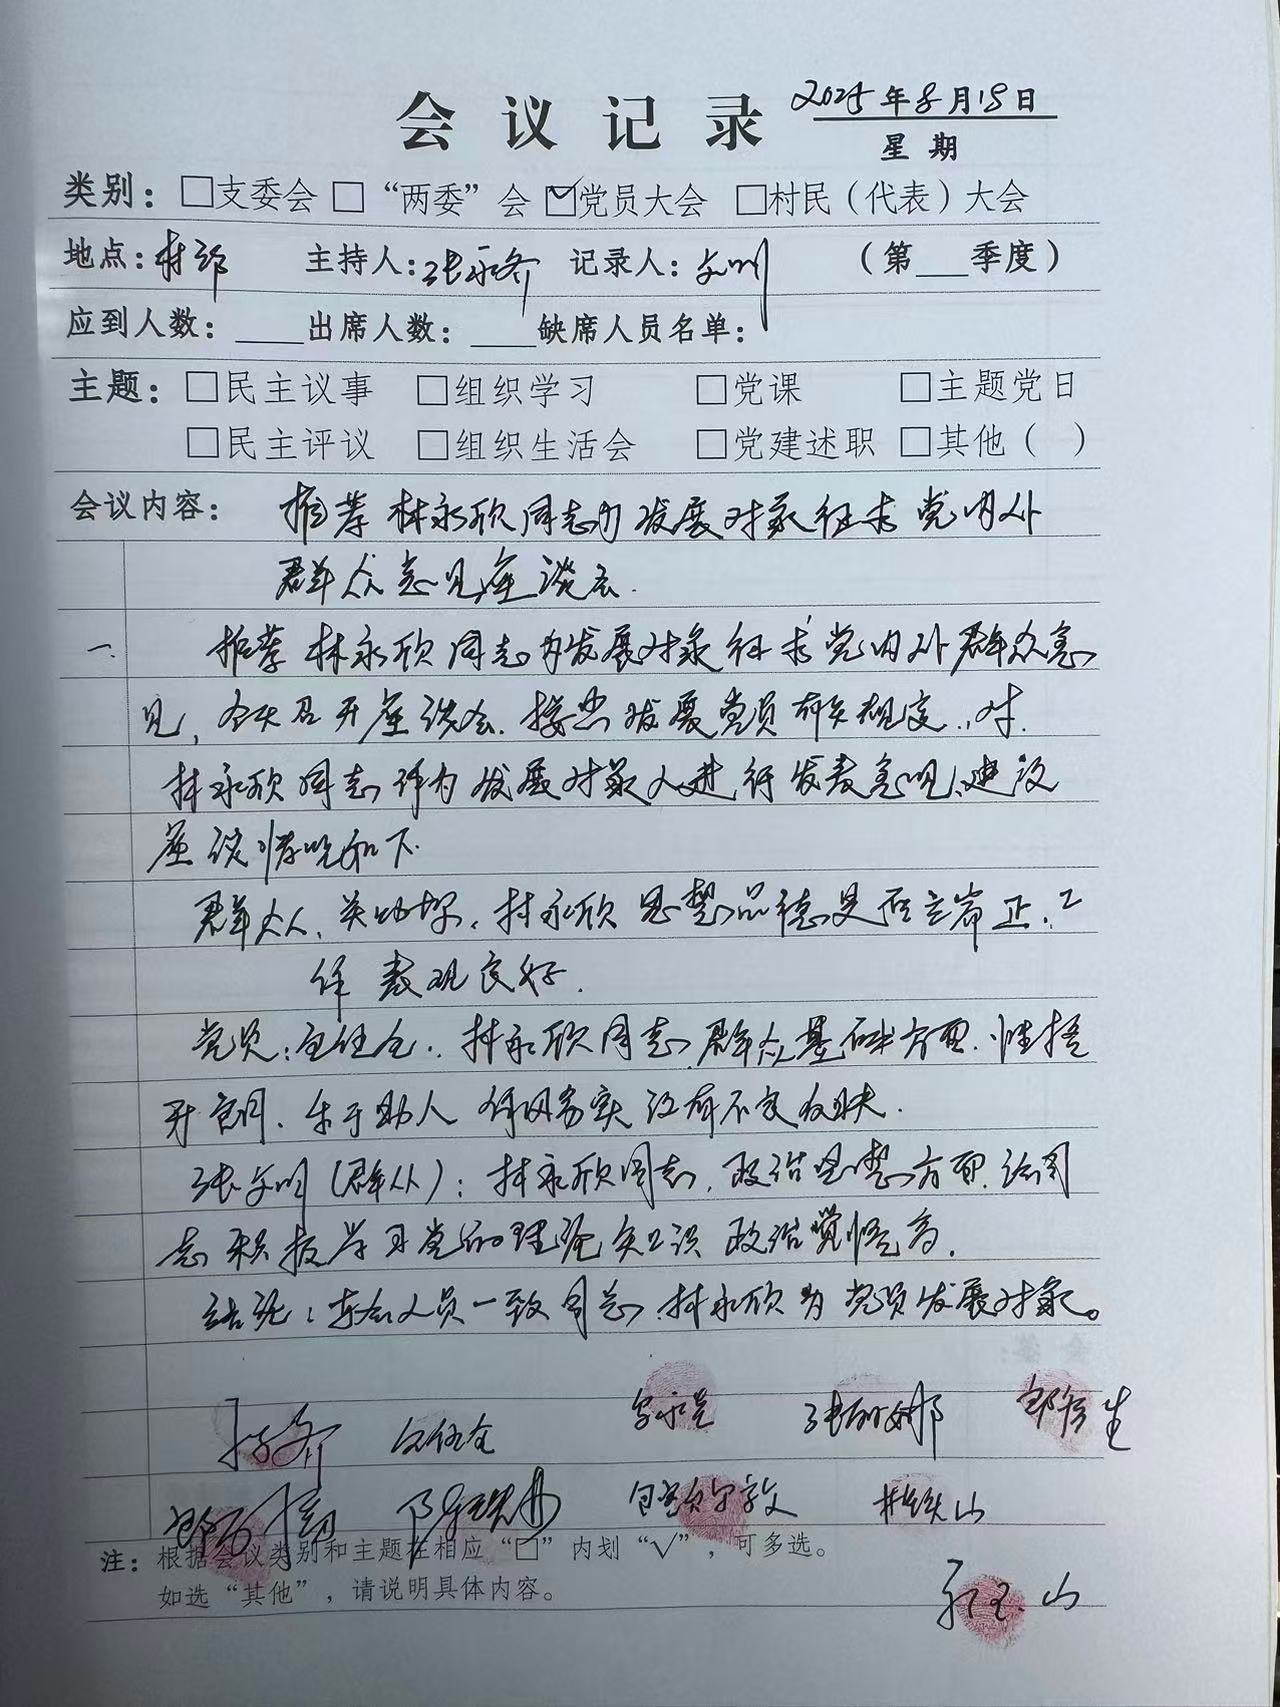 会议记录 2025年8月18日
星期
类别：☐支委会 ☐“两委”会 ☑党员大会 ☐村民（代表）大会
地点：村部 主持人：张永齐 记录人：文明 （第___季度）
应到人数：____出席人数：____缺席人员名单：
主题：☐民主议事 ☐组织学习 ☐党课 ☐主题党日
☐民主评议 ☐组织生活会 ☐党建述职 ☐其他（ ）
会议内容： 推荐林永欣同志为发展对象征求党内外
群众意见座谈会.
一. 推荐林永欣同志为发展对象征求党内外群众意
见，今天召开座谈会.按照发展党员有关规定，对.
林永欣同志作为发展对象人进行发表意见、建议
座谈情况如下.
群众: 林永欣思想品德是否立端正.工
作表现良好.
党员: 林永欣同志群众基础方面.性格
开朗、乐于助人 作风务实 没有不良反映.
张文明（群众）：林永欣同志，政治思想方面，该同
志积极学习党的理论知识 政治觉悟高.
结论：与会人员一致同意.林永欣为党员发展对象。
张丽娜
林铁山
注：根据会议类别和主题在相应“☐”内划“√”，可多选。
如选“其他”，请说明具体内容。